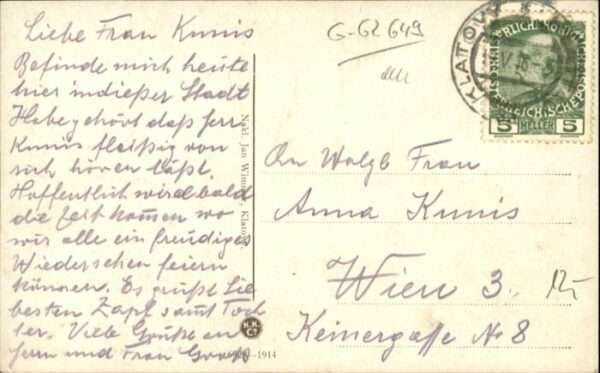 Liebe Frau Kunis
Befinde mich heute
hier in dießer Stadt
Habe gehört daß Herr
Kunis fleißig von
sich hören läßt.
Hoffentlich wird bald
die Zeit kommen wo
wir alle ein freudiges
Wiedersehen feiern
können. Es grüßt Sie
bestens Zapf samt Toch
ter. Viele Grüße an
Herrn und Frau
G-62 649
KLATOV
5 HELLER 5
Nakl. Jan Klatov
An Wolgb Frau
Anna Kunis
Wien 3.
Keinergasse № 8
1914